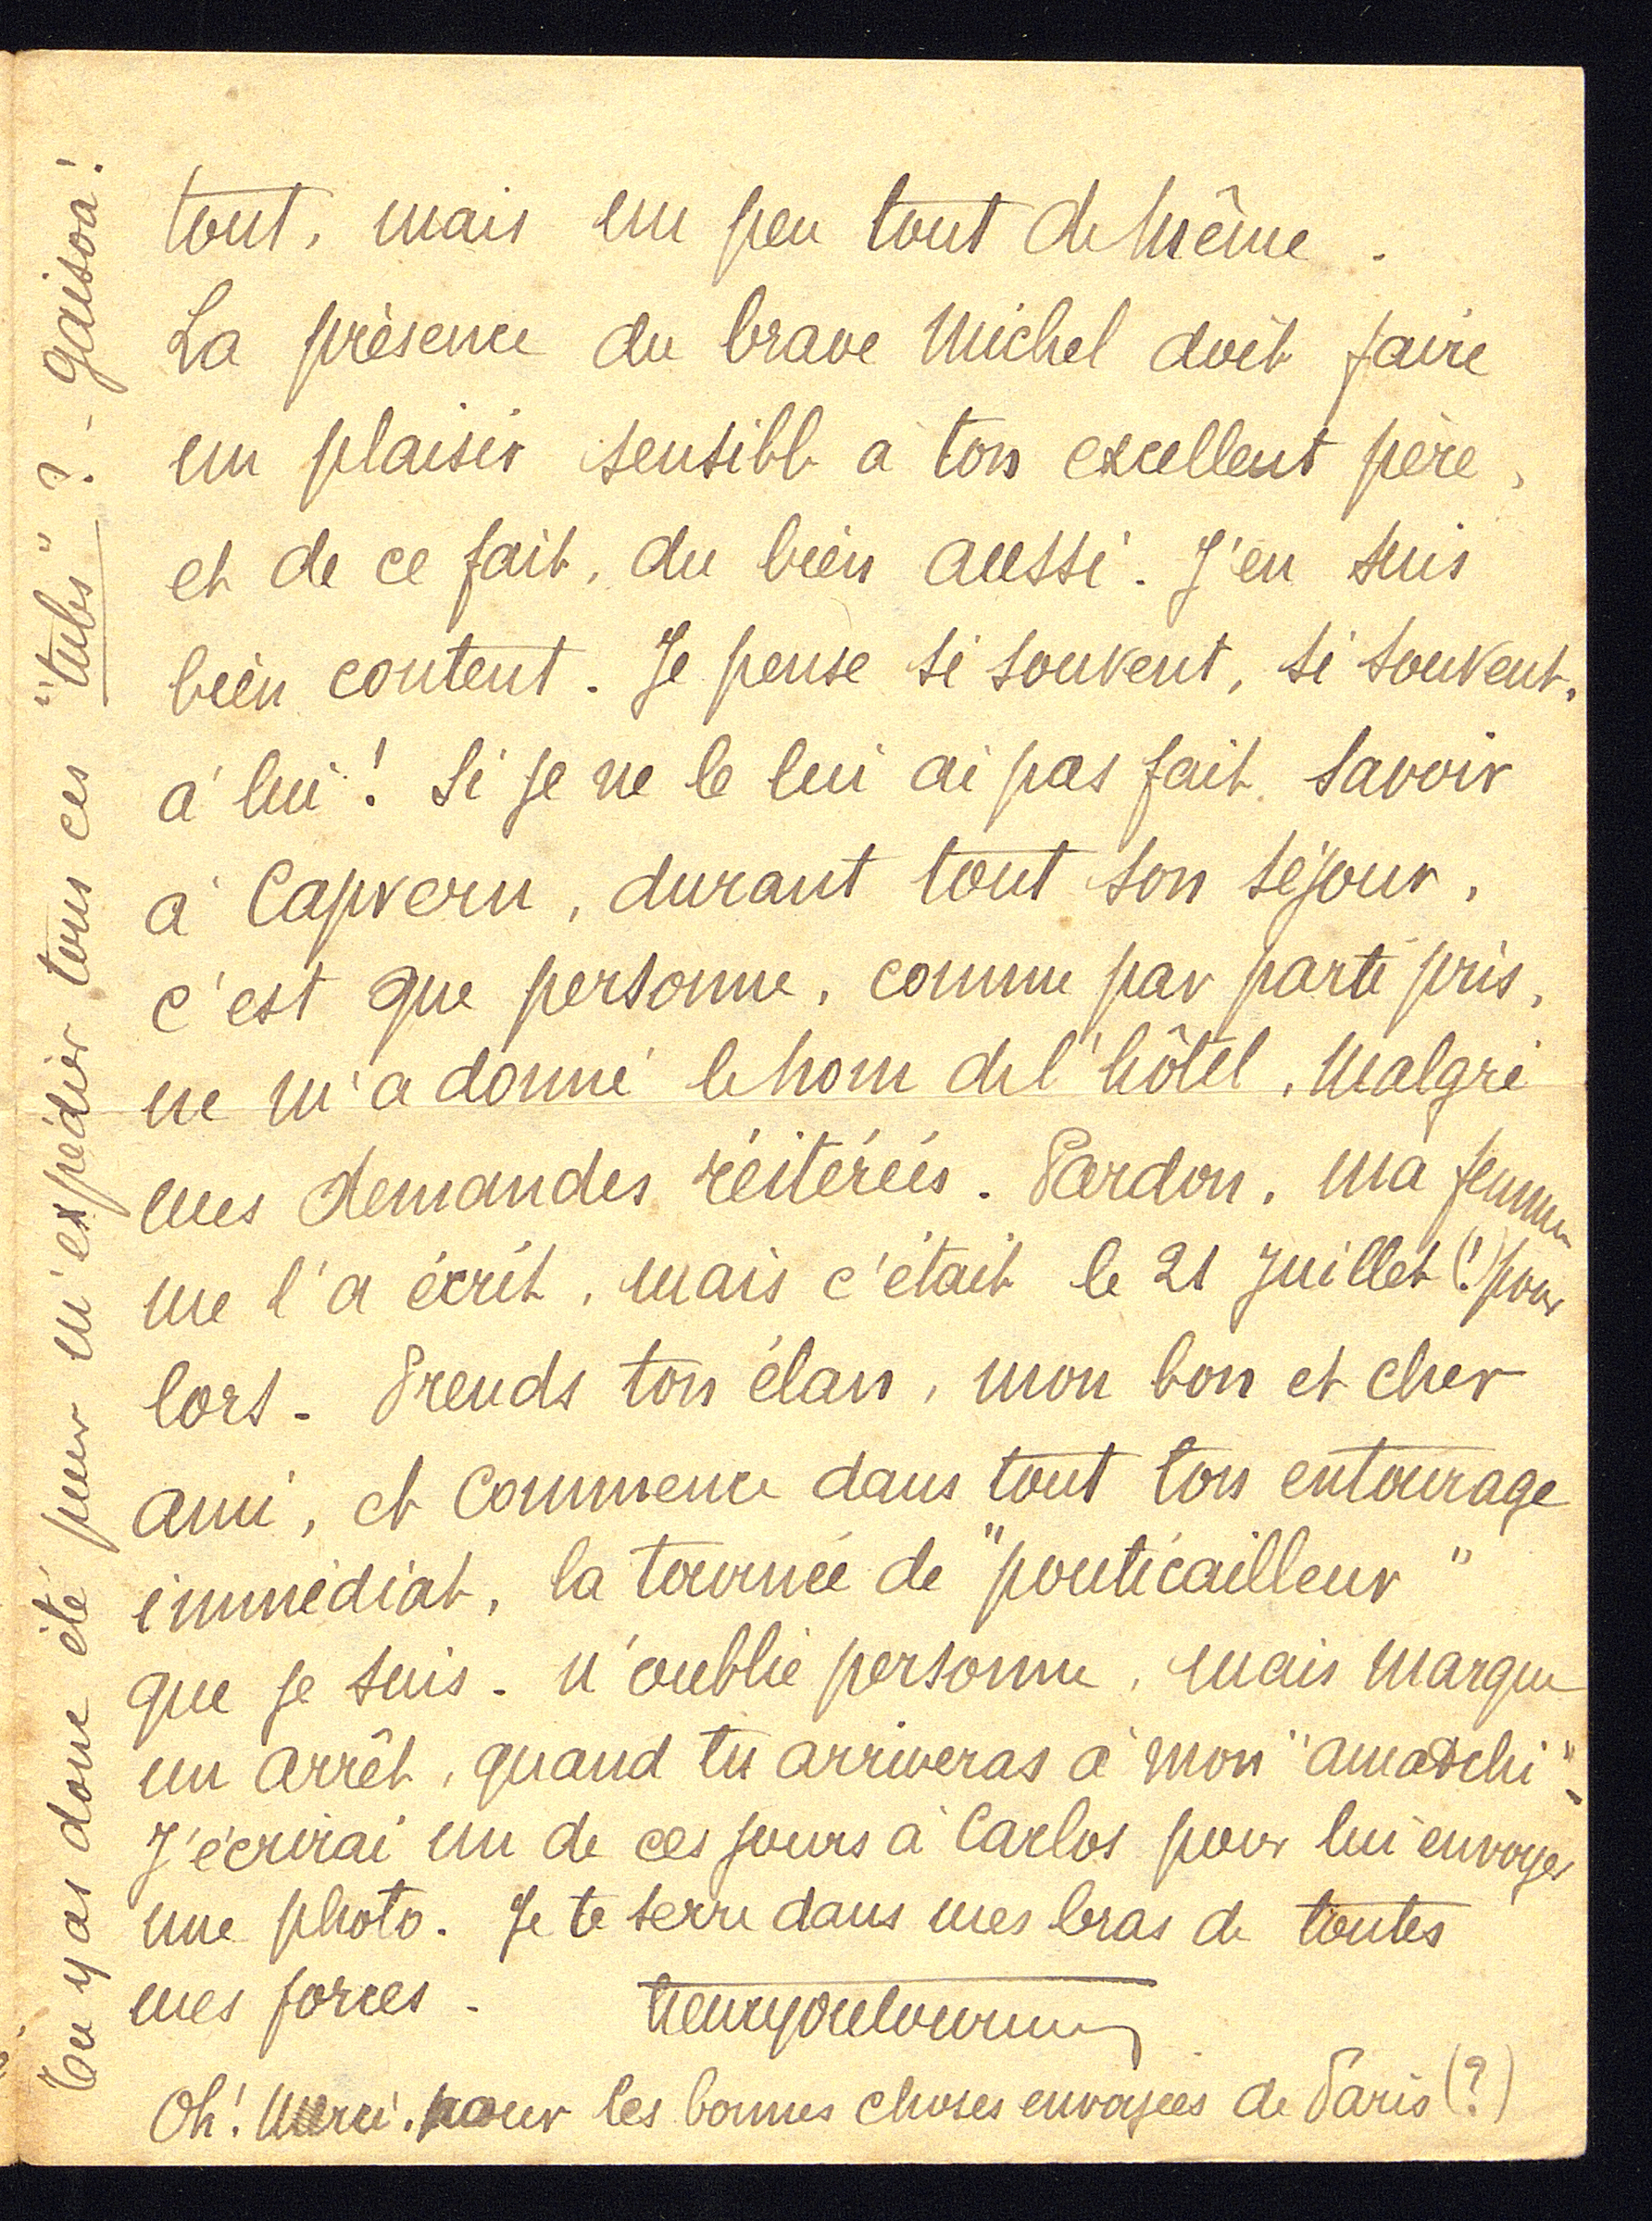 tout, mais un peu tout de même.
La présence du brave Michel doit faire
un plaisir sensible à ton excellent père,
et de ce fait, du bien aussi. J'en suis
bien content. Je pense si souvent, si souvent,
à lui! Si je ne le lui ai pas fait savoir
à Capvern, durant tout son séjour,
c'est que personne, comme par parti pris,
ne m'a donné le nom de l'hôtel, malgré
mes demandes réitérées. Pardon, ma femme
me l'a écrit, mais c'était le 21 Juillet (!) pour
lors. Prends ton élan, mon bon et cher
ami, et commence dans tout ton entourage
immédiat, la tournée de "ponticailleur"
que je suis. N'oublie personne, mais marque
un arrêt, quand tu arriveras à mon "amatchi".
J'écrirai un de ces jours à Carlos pour lui envoyer
une photo. Je te serre dans mes bras de toutes
mes forces.
Oh! Merci. pour les bonnes choses envoyées de Paris (?)
Tu y as donc été pour m'expédier tous ces "tubs"? - gaisoa!